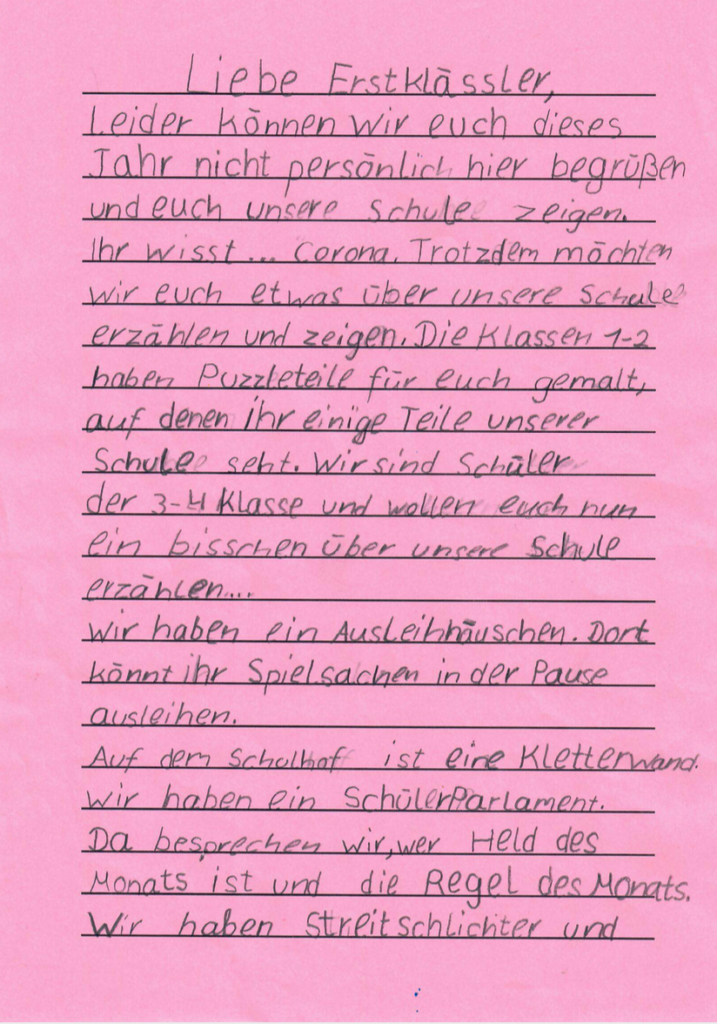 Liebe Erstklässler,
Leider können wir euch dieses
Jahr nicht persönlich hier begrüßen
und euch unsere Schule zeigen.
Ihr wisst... Corona. Trotzdem möchten
wir euch etwas über unsere Schule
erzählen und zeigen. Die Klassen 1-2
haben Puzzleteile für euch gemalt,
auf denen ihr einige Teile unserer
Schule seht. Wir sind Schüler
der 3-4 Klasse und wollen euch nun
ein bisschen über unsere Schule
erzählen....
Wir haben ein Ausleihhäuschen. Dort
könnt ihr Spielsachen in der Pause
ausleihen.
Auf dem Schulhof ist eine Kletterwand.
Wir haben ein SchülerParlament.
Da besprechen wir, wer Held des
Monats ist und die Regel des Monats.
Wir haben Streitschlichter und